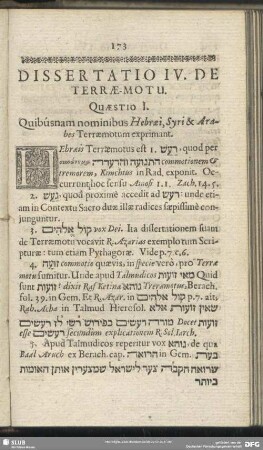 173
DISSERTATIO IV. DE
TERRÆ-MOTU.
QUÆSTIO I.
Quibusnam nominibus Hebræi, Syri & Ara-
bes Terræmotum exprimant.
HEbræis Terræmotus est 1. רעש. quod per
התנועה והרעדה commotionem &
tremorem, Kimchius in Rad. exponit. Oc-
currunt hoc sensu Amosi 1.1. Zach. 14.5.
2. געש. quod proximè accedit ad רעש: unde eti-
am in Contextu Sacro duæ illæ radices sæpissimè con-
junguntur.
3. קול אלהים vox Dei. Ita dissertationem suam
de Terræmotu vocavit R. Azarias exemplo tum Scri-
pturæ: tum etiam Pythagoræ. Vide p. 7. c. 6.
4. זועה commotio quævis, in specie verò, pro Terræ
motu sumitur. Unde apud Talmudicos מאי זועות Quid
sunt זועות? dixit Raf Ketina גוהא Terræmotus, Berach.
fol. 39. in Gem. Et R. Azar. in קול אלהים p. 7. ait,
Rab. Acha in Talmud Hierosol. שאין זועות אלא
זועות Docet מורה רעשים בפירוש רשי לו רעשים
esse רעשים secundum explicationem R. Sel. Jarch.
5. Apud Talmudicos reperitur vox גוהא. de qua
Baal Aruch ex Berach. cap. הרואה in Gem.
שרואה הקבה צער לישראל שמצערין אותן האומות
ביותר
SLUB